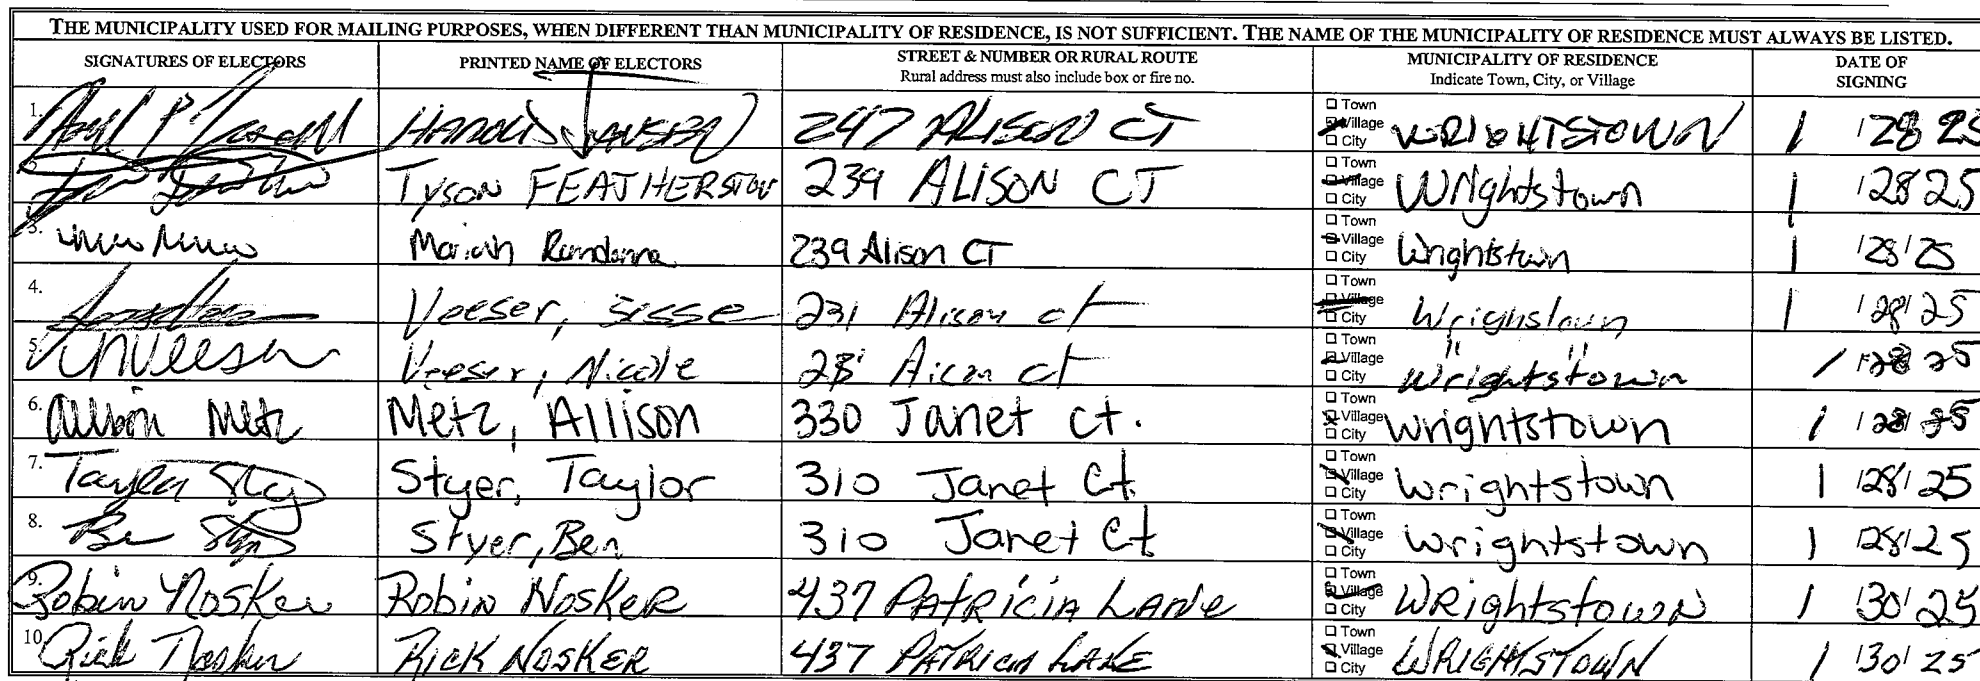 THE MUNICIPALITY USED FOR MAILING PURPOSES, WHEN DIFFERENT THAN MUNICIPALITY OF RESIDENCE, IS NOT SUFFICIENT. THE NAME OF THE MUNICIPALITY OF RESIDENCE MUST ALWAYS BE LISTED.
SIGNATURES OF ELECTORS PRINTED NAME OF ELECTORS STREET & NUMBER OR RURAL ROUTE Rural address must also include box or fire no. MUNICIPALITY OF RESIDENCE Indicate Town, City, or Village DATE OF SIGNING
1. 247 ALISON CT Town Village City WRIGHTSTOWN 1 128 25
2. TYSON FEATHERSTON 239 ALISON CT Town Village City Wrightstown 1 128 25
3. Mariah 239 Alison CT Town Village City Wrightstown 1 128 125
4. Veeser, Jesse 231 Alison ct Town Village City Wrighstown 1 128 125
5. Veeser, Nicole ct Town Village City " Wrightstown " 1 128 25
6. Allison Metz Metz, Allison 330 Janet Ct. Town Village City Wrightstown 1 128 25
7. Taylor Styer, Taylor 310 Janet Ct. Town Village City Wrightstown 1 128 125
8. Ben Styer, Ben 310 Janet Ct Town Village City Wrightstown 1 128 125
9. Robin Nosker Robin Nosker 437 PATRICIA LANE Town Village City WRightstown 1 130 125
10. Rick Nosker RICK NOSKER 437 PATRICIA LANE Town Village City WRIGHTSTOWN 1 130 125